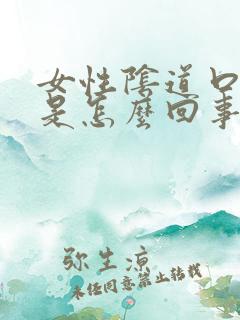 女性陰道口
是怎麼回事
弥生涼
未任同意禁止轉載